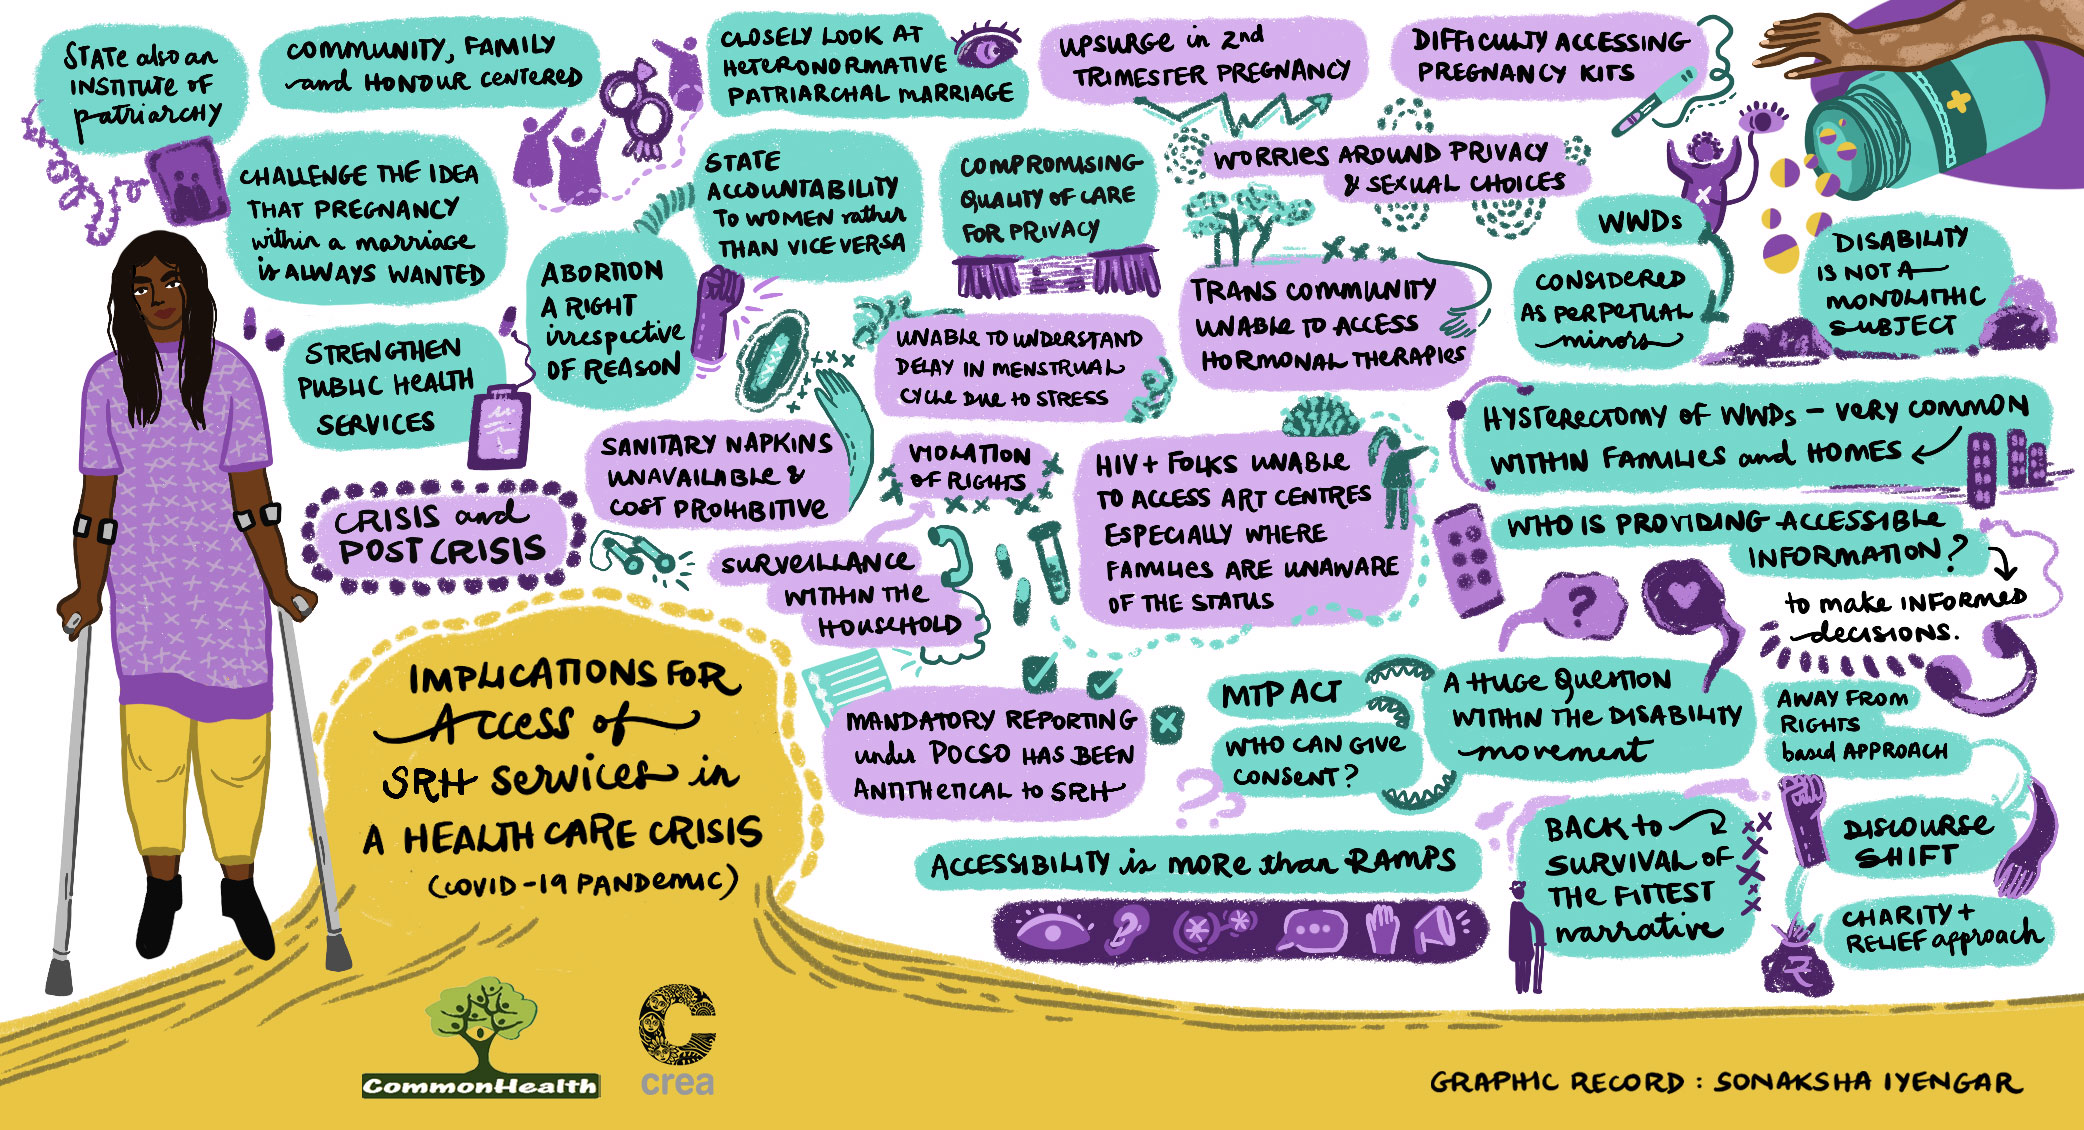 STATE also an
INSTITUTE OF
patriARCHY
COMMUNITY, FAMILY
and HONOUR CENTERED
CLOSELY LOOK AT
HETERONORMATIVE
PATRIARCHAL MARRIAGE
UPSURGE in 2nd
TRIMESTER PREGNANCY
DIFFICULTY ACCESSING
PREGNANCY KITS
CHALLENGE THE IDEA
THAT PREGNANCY
within a marriage
is ALWAYS WANTED
STATE
ACCOUNTABILITY
TO WOMEN rather
THAN VICE VERSA
COMPROMISING
QUALITY OF CARE
FOR PRIVACY
WORRIES AROUND PRIVACY
& SEXUAL CHOICES
WWDs
CONSIDERED
AS PERPETUAL
minors
DISABILITY
IS NOT A
MONOLITHIC
SUBJECT
ABORTION
A RIGHT
irrespective
OF REASON
STRENGTHEN
PUBLIC HEALTH
SERVICES
UNABLE TO UNDERSTAND
DELAY IN MENSTRUAL
CYCLE DUE to STRESS
TRANS COMMUNITY
UNABLE TO ACCESS
HORMONAL THERAPIES
HYSTERECTOMY OF WWDs – VERY COMMON
WITHIN FAMILIES and HOMES
SANITARY NAPKINS
UNAVAILABLE &
COST PROHIBITIVE
VIOLATION
OF RIGHTS
HIV+ FOLKS UNABLE
TO ACCESS ART CENTRES
ESPECIALLY WHERE
FAMILIES ARE UNAWARE
OF THE STATUS
WHO IS PROVIDING ACCESSIBLE
INFORMATION?
to make INFORMED
decISIONS.
CRISIS and
POST CRISIS
SURVEILLANCE
WITHIN THE
HOUSEHOLD
?
IMPLICATIONS FOR
Access of
SRH services in
A HEALTH CARE CRISIS
(COVID-19 PANDEMIC)
MANDATORY REPORTING
under POCSO HAS BEEN
ANTITHETICAL to SRH
MTP ACT
WHO CAN GIVE
CONSENT?
??
A HUGE QUESTION
WITHIN THE DISABILITY
movement
AWAY FROM
RIGHTS
based APPROACH
ACCESSIBILITY is more than RAMPS
BACK to
SURVIVAL OF
THE FITTEST
narrative
DISCOURSE
SHIFT
CHARITY +
RELIEF approach
₹
CommonHealth
crea
GRAPHIC RECORD : SONAKSHA IYENGAR